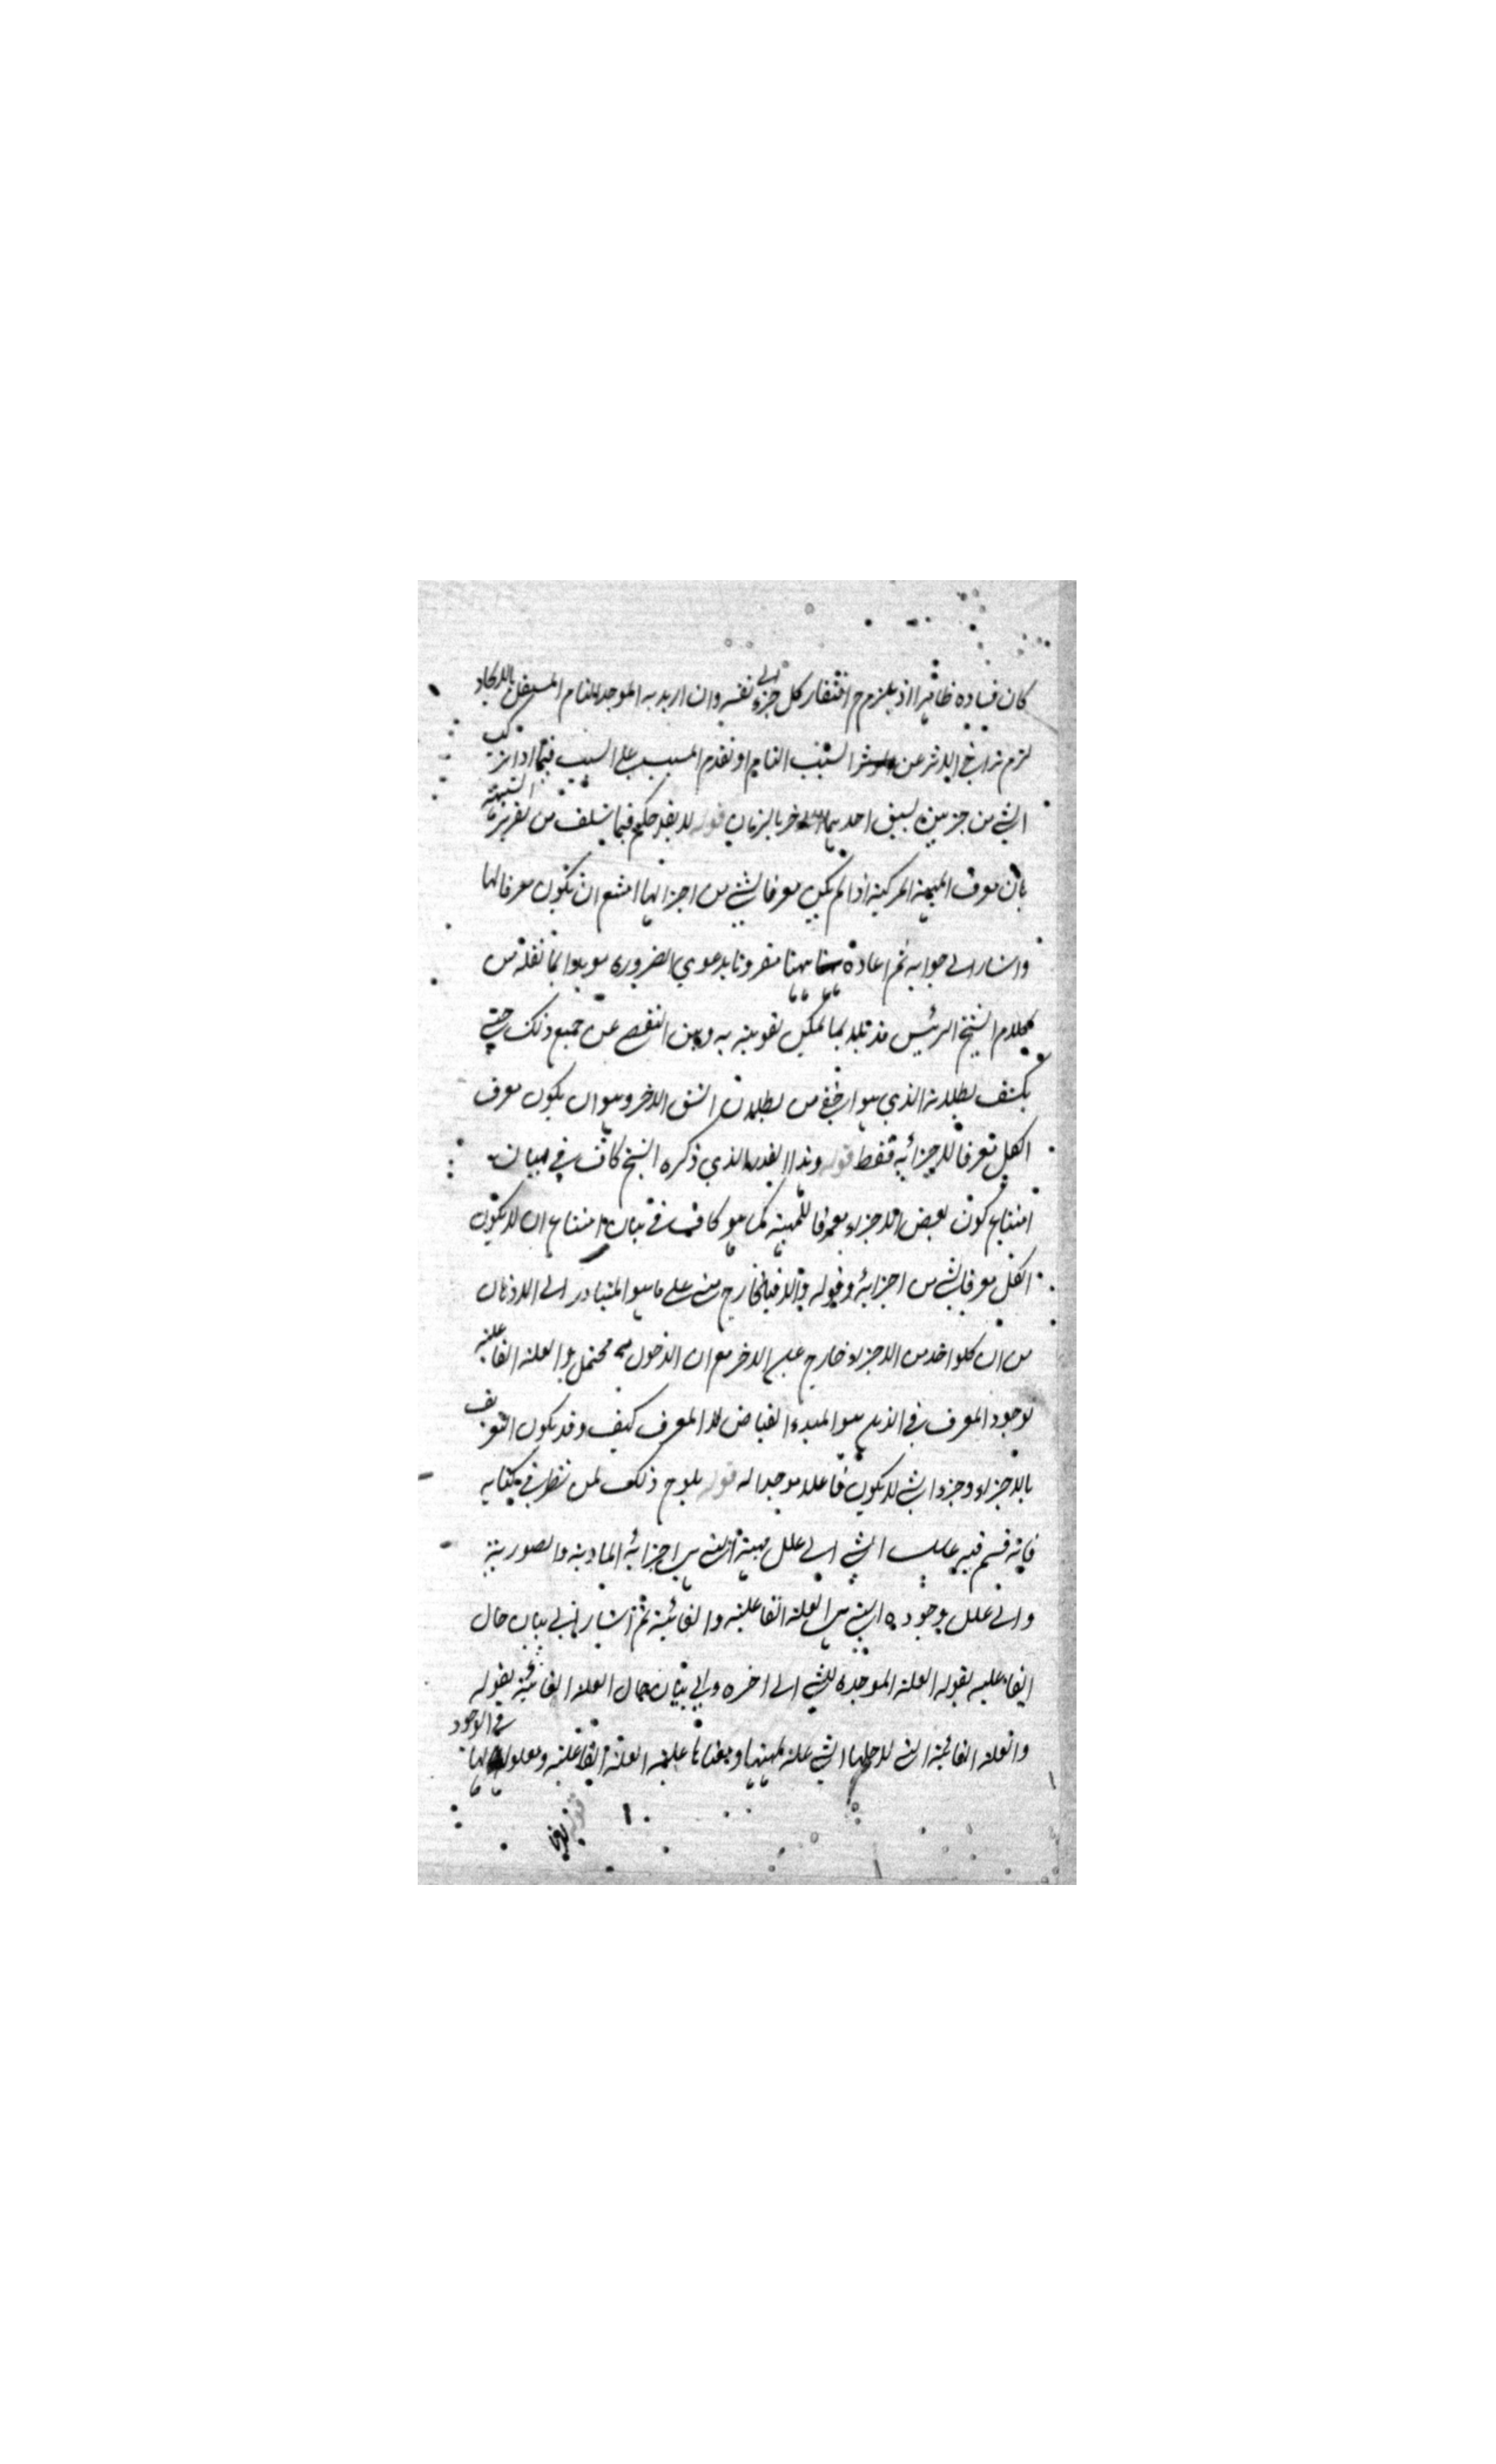 كان فساده ظاهرا اذ يلزم ح افتقار كل جزء الى نفسه وان اريد به الموجد التام المستقل بالايجاد
لزم تراخي الاثر عن المؤثر السبب التام او تقدم المسبب على السبب فيما اذا تركب
الشي من جزئين يسبق احدهما الاخر بالزمان قوله لا يقدحكم فيما سلف من تقرير الشبهة
بان معرف المهية المركبة اذا لم يكن معرفا لشي من اجزائها امتنع ان يكون معرفا لها
واشار الى جوابه ثم اعاده ههنا مقرونا بدعوى الضرورة مويدا بما نقله من
كلام الشيخ الرئيس مذيلا بما يمكن تقويته به وبين التفصي عن جميع ذلك حتى
يكشف بطلانه الذي هو اخفى من بطلان الشق الاخر وهو ان يكون معرف
الكل معرفا لاجزائه فقط قوله وهذا القدر الذي ذكره الشيخ كاف في بيان
امتناع كون بعض الاجزاء معرفا للمهية كما هو كاف في بيان امتناع ان لا يكون
الكل معرفا لشي من اجزائه وقوله والا فبالخارج مبني على ما هو المتبادر الى الاذهان
من ان كل واحد من الاجزاء خارج عن الاخر مع ان الدخول محتمل والعلة الفاعلية
لوجود المعرف في الذهن هو المبدء الفياض لا المعرف كيف وقد يكون التعريف
بالاجزاء وجزء الشي لا يكون فاعلا موجدا له قوله يلوح ذلك لمن نظر في كتابه
فانه قسم فيه علل الشي الى علل مهيته التي هي اجزائه المادية والصورية
والى علل وجوده التي هي العلة الفاعلية والغائية ثم اشار الى بيان حال
الفاعلية بقوله العلة الموجدة للشي الى اخره والى بيان حال العلة الغائية بقوله
والعلة الغائية التي لاجلها الشي علة لمهيتها ومعناها علية العلة الفاعلية ومعلولة لها في الوجود
قوله